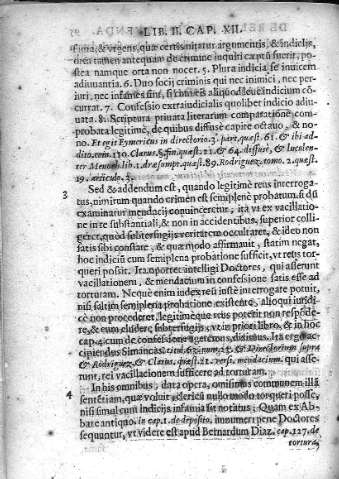 LIB. II. CAP. XII.
& vrgens, quæ certis nitatur argumentis, & indicijs,
tamen antequam de crimine inquiri cæptũ fuerit, po-
stea namque orta non nocet. 5. Plura indicia se inuicem
adiuuantia. 6. Duo socij criminis qui nec inimici, nec per-
iuri, nec infames sint, si tamen aliquod seuẽ indiciũ cõ-
currat. 7. Confessio extraiudicialis quolibet indicio adiu-
uata. 8. Scriptura priuata literarum comparatione com-
probata legitimè, de quibus diffusè capite octauo, & no-
no. Et egit Eymericus in directorio 3. part. quæst. 61. & ibi ad-
21. & 64. & luculen-
ter quæst. 89. Rodriguez. tomo. 2. quæst.
19. articulo. 3.
3 Sed & addendum est, quando legitimè reus interroga-
tus, nimirum quando crimen est semiplenè probatum, si dũ
examinatur mendacij conuincetur, ita vt ex vacillatio-
ne in re substantiali, & non in accidentibus, superior colli-
geret, quòd subterfugijs veritatem occultaret, & ideo non
satis sibi constare, & quæ modo affirmauit, statim negat,
hoc indiciũ cum semiplena probatione sufficit, vt reus tor-
queri possit. Ita oportet intelligi Doctores, qui asserunt
vacillationem, & mendacium in confessione satis esse ad
torturam. Neque enim iudex reũ iustè interrogare potuit,
nisi saltim semiplena probatione existente, alioqui iuridi-
cè non procederet, legitimèque reus poterit non respõde-
re, & eum eludere subterfugijs, vt in priori libro, & in hoc
cap. 4. cum de confessione egerimus, diximus. Ita ergo ac-
cipiendus Simancas, & Directorium supra
& Rodriguez, & Clarus, quæst. 21. vers. mendacium. qui asse-
runt, rei vacillationem sufficere ad torturam.
4 In his omnibus, data opera, omisimus communem illã
sentẽtiam, quæ voluit, clericũ nullo modo torqueri posse,
nisi simul cum indicijs infamia sit notatus; Quam ex Ab-
bate antiquo. in cap. 1. de deposito, innumeri penè Doctores
sequuntur, vt videre est apud Bernardum Diaz. cap. 127. de
tortura,